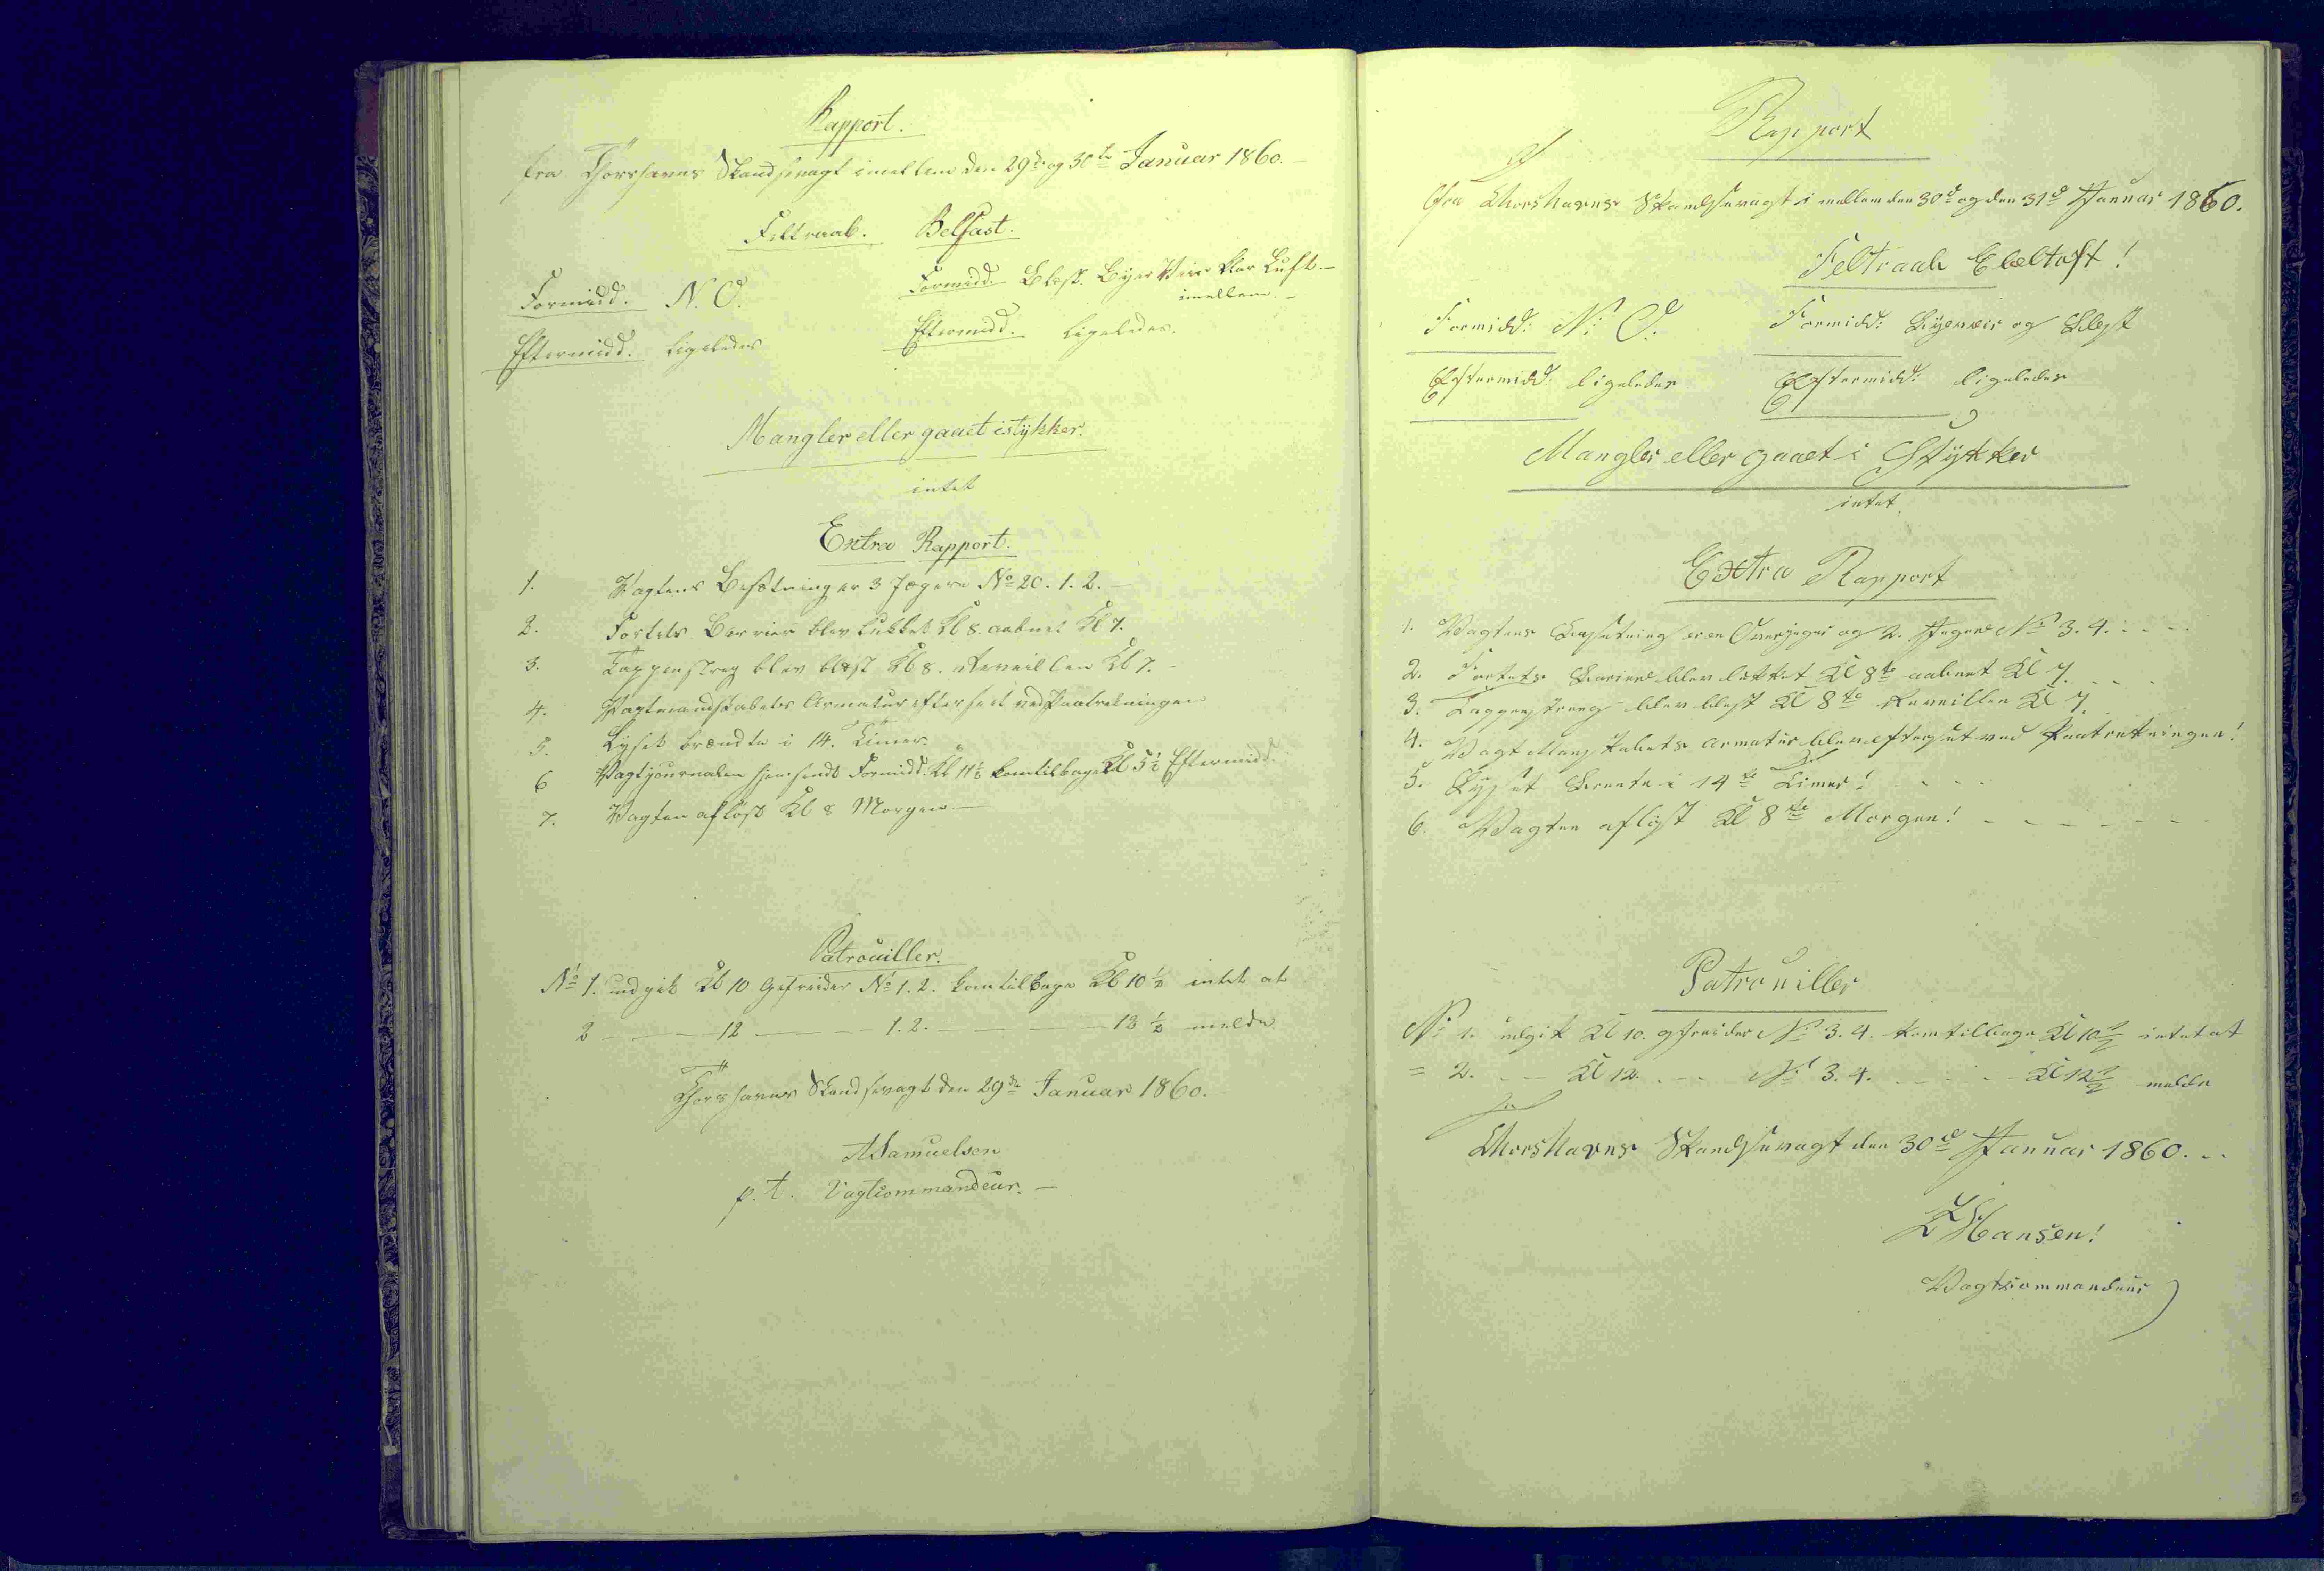 Rapport.
fra Thorshavns Skandsevagt imellem den 29de og 30te Januar 1860.
Feltraab. Belfast.
Formidd. N. O. Formidd. Blæst. Byer Veir klar Luft.
imellem.
Eftermidd. ligeledes Eftermidd. ligeledes.
Mangler eller gaaet istykker.
intet
Extra Rapport.
1. Vagtens Besætning er 3 Jægere No 20. 1. 2.
2. Fortets Barriere blev lukket Kl 8. aabnet Kl 7.
3. Tappenstreg blev blæst Kl 8. Reveillen Kl 7.
4. Vagtmandskabets Armatur efterseet ved Paatrædningen
5. Lyset brændte i 14. Timer.
6 Vagtjournalen hjemsendt Formidd. Kl 11½ kom tilbage Kl 5½ Eftermidd.
7. Vagten afløst Kl 8 Morgen.
Patrouiller.
No 1. udgik Kl 10 Gefreider No 1. 2. kom tilbage Kl 10½ intet at
2 — 12 — 1. 2. — 12½ melde
Thorshavns Skandsevagt den 29de Januar 1860.
ASamuelsen
p. t. Vagtcommandeur.
Rapport
fra Thorshavns Skandsevagt i mellem den 30d og den 31d Januar 1860.
Feltraab Ebeltoft!
Formidd: N: O: Formidd: Byeveir og Blest
Eftermidd: ligeledes Eftermidd: ligeledes
Mangler eller gaaet i Stykker
intet.
Extra Rapport
1. Vagtens Besetning er en Overjeger og 2. Jegere No 3. 4.
2. Fortets Bariere blev lukket Kl 8te aabnet Kl 7.
3. Tappenstreng blev blest Kl 8te Reveillen Kl 7.
4. Vagt Manskabets armatur blev efterset ved Paatredningen!
5. Lyset Brente i 14te Timer!
6. Vagten aflest Kl 8te Morgen!
Patrouiller
No 1. udgik Kl 10. gefreider No 3. 4. kom tilbage Kl 10½ intet at
= 2. Kl 12. No 3. 4. Kl 12½ melde
Thorshavns Skandsevagt den 30d Januar 1860.
Hansen!
Vagtcommandeur